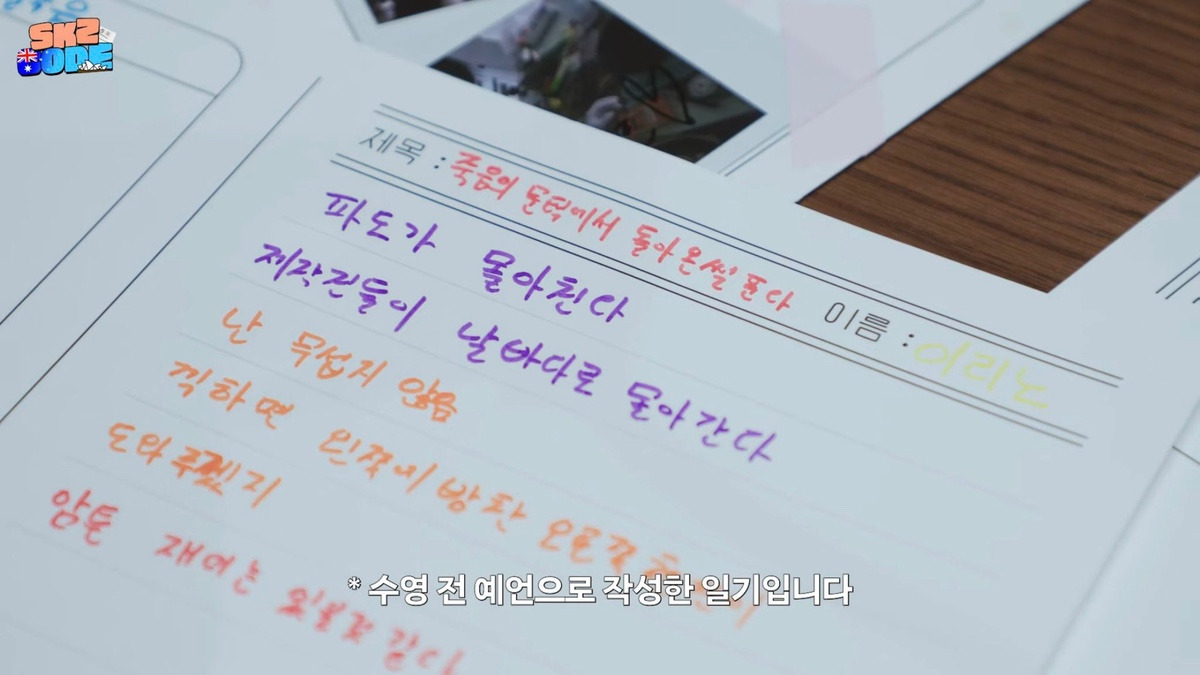 SKZ CODE
제목 : 죽음의 문턱에서 돌아온썰 푼다 이름 :
파도가 몰아친다
제작진들이 날 바다로 몰아간다
난 무섭지 않음
끽하면 왼쪽이 방찬 오른쪽
도와주겠지
암튼 재미는 있을것 같다
* 수영 전 예언으로 작성한 일기입니다